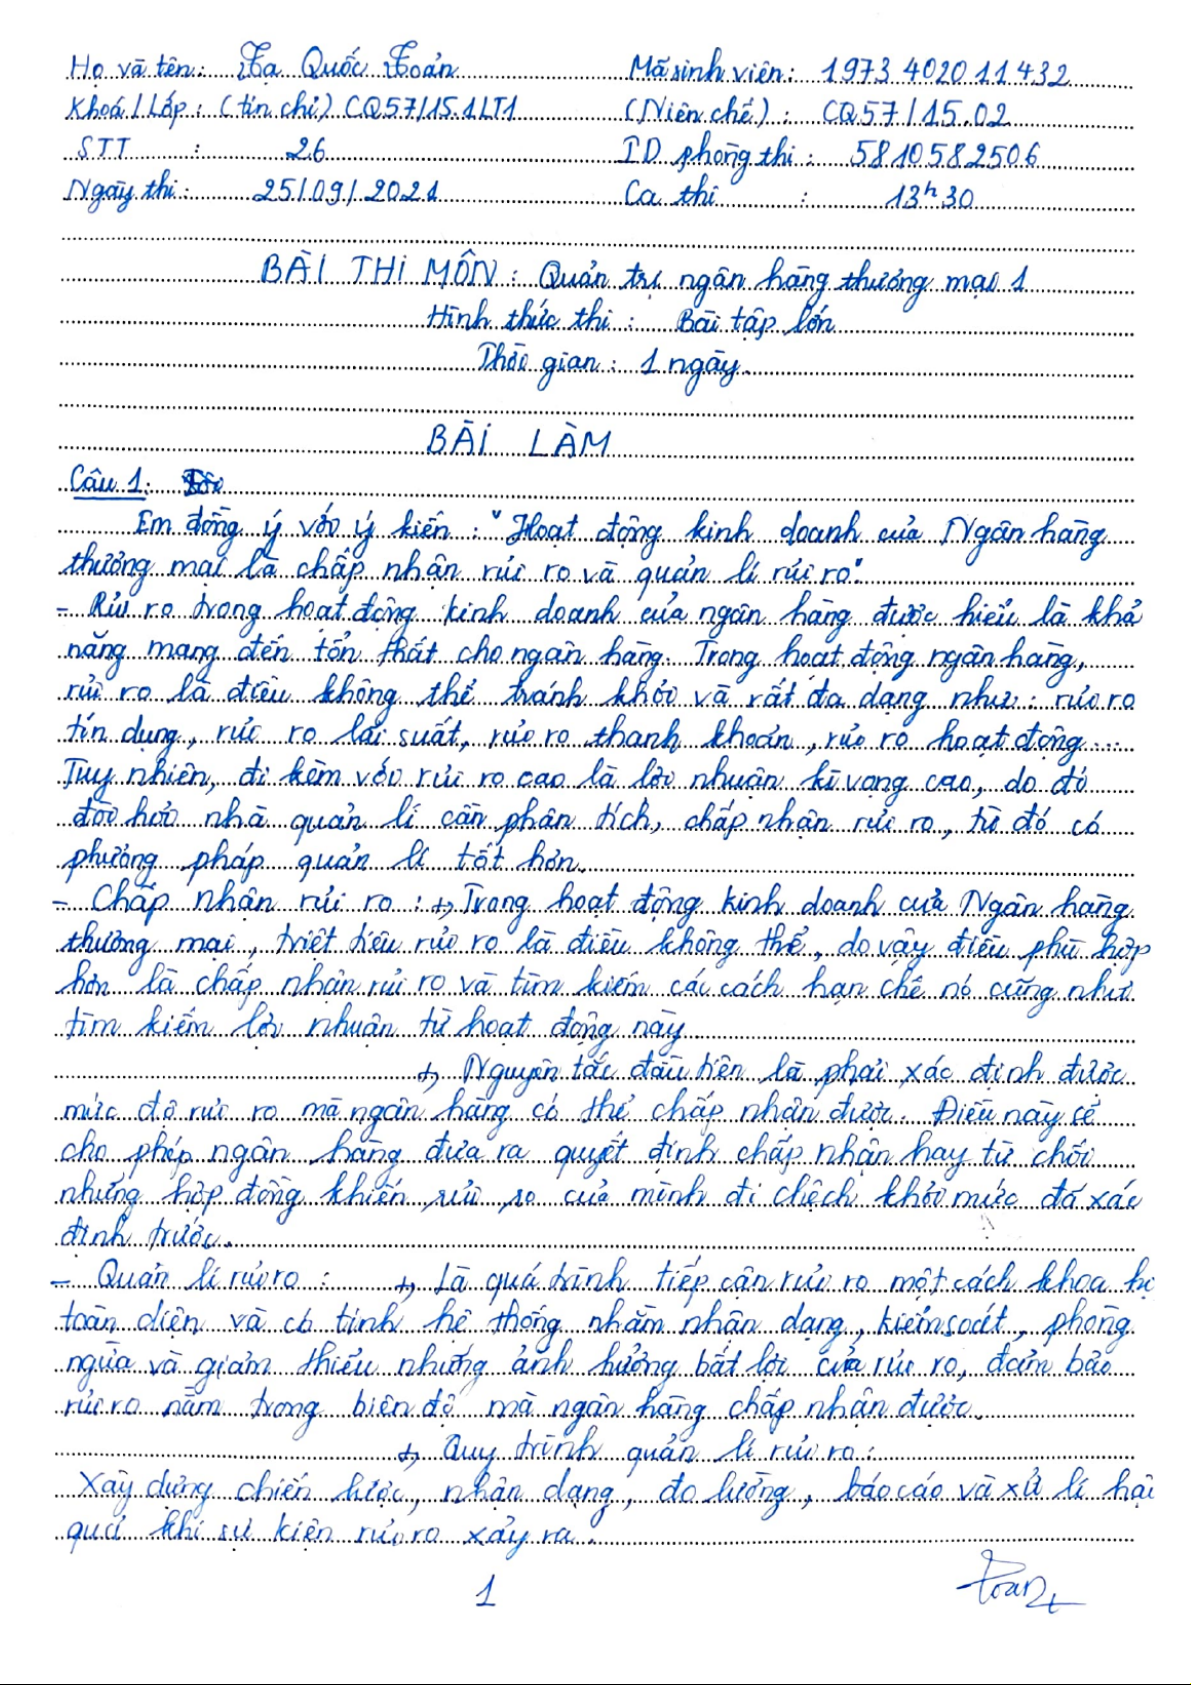 Họ và tên: Tạ Quốc Toản Mã sinh viên: 1973 4020 11 432
Khoá/Lớp: (tín chỉ) CQ57/15.1LT1 (Niên chế): CQ57/15.02
STT : 26 ID phòng thi: 5810582506
Ngày thi: 25/09/2021 Ca thi : 13h30
BÀI THI MÔN: Quản trị ngân hàng thương mại 1
Hình thức thi: Bài tập lớn
Thời gian: 1 ngày.
BÀI LÀM
Câu 1:
Em đồng ý với ý kiến: "Hoạt động kinh doanh của Ngân hàng
thương mại là chấp nhận rủi ro và quản lí rủi ro".
- Rủi ro trong hoạt động kinh doanh của ngân hàng được hiểu là khả
năng mang đến tổn thất cho ngân hàng. Trong hoạt động ngân hàng,
rủi ro là điều không thể tránh khỏi và rất đa dạng như: rủi ro
tín dụng, rủi ro lãi suất, rủi ro thanh khoản, rủi ro hoạt động...
Tuy nhiên, đi kèm với rủi ro cao là lợi nhuận kì vọng cao, do đó
đòi hỏi nhà quản lí cần phân tích, chấp nhận rủi ro, từ đó có
phương pháp quản lí tốt hơn.
- Chấp nhận rủi ro: +, Trong hoạt động kinh doanh của Ngân hàng
thương mại, triệt tiêu rủi ro là điều không thể, do vậy điều phù hợp
hơn là chấp nhận rủi ro và tìm kiếm các cách hạn chế nó cũng như
tìm kiếm lợi nhuận từ hoạt động này
+, Nguyên tắc đầu tiên là phải xác định được
mức độ rủi ro mà ngân hàng có thể chấp nhận được. Điều này sẽ
cho phép ngân hàng đưa ra quyết định chấp nhận hay từ chối
những hợp đồng khiến rủi ro của mình đi chệch khỏi mức đã xác
định trước.
- Quản lí rủi ro: +, Là quá trình tiếp cận rủi ro một cách khoa họ
toàn diện và có tính hệ thống nhằm nhận dạng, kiểm soát, phòng
ngừa và giảm thiểu những ảnh hưởng bất lợi của rủi ro, đảm bảo
rủi ro nằm trong biên độ mà ngân hàng chấp nhận được.
+, Quy trình quản lí rủi ro:
Xây dựng chiến lược, nhận dạng, đo lường, báo cáo và xử lí hậu
quả khi sự kiện rủi ro xảy ra.
1 Toản